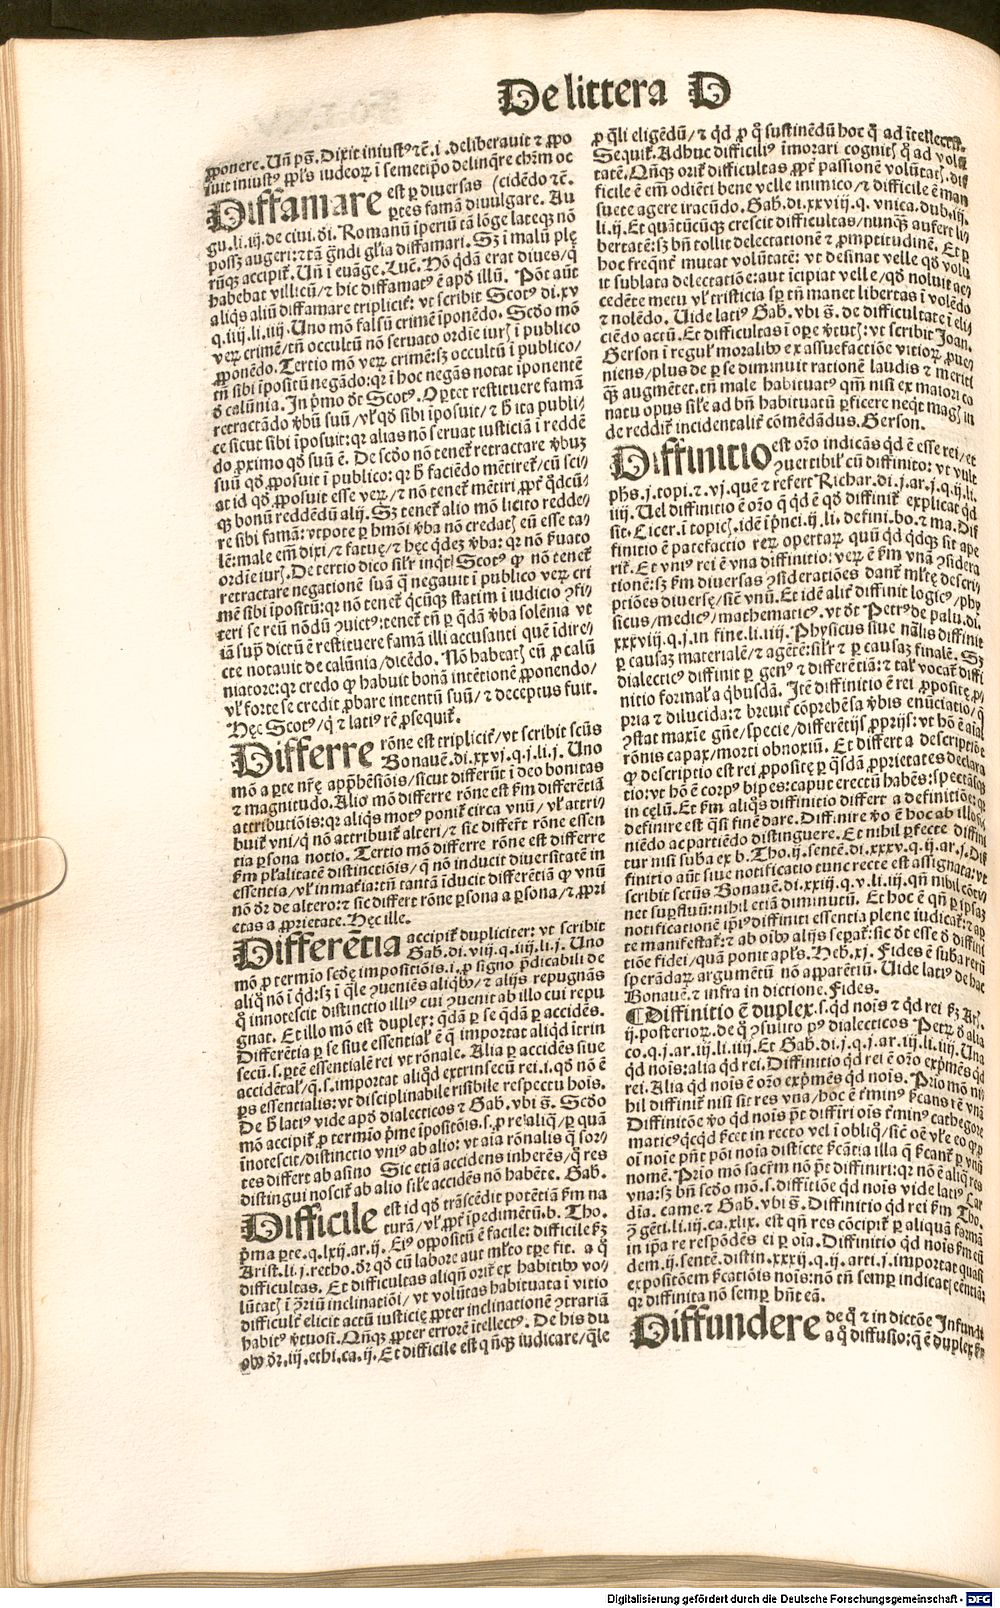 De littera D
ꝓponere. Uñ pś. Dixit iniustꝰ ⁊c̃. i. deliberauit ⁊ ꝓpo
suit iniustꝰ ppl̃s iudeoꝝ ĩ semetip̃o delinq̃re
Diffamare est ꝑ diuersas (cidẽdo ⁊c̃.
ꝑtes famã diuulgare. Au
gu. li. iij. de ciui. ði. Romanũ ĩperiũ tã lõge lateqꝫ nõ
habebat villicũ/ ⁊ hic diffamatꝰ ẽ apđ illũ. Põt aũt
aliq̃s aliũ diffamare tripliciť: vt scribit Scotꝰ di. xv
q. iiij. li. iiij. Uno mõ falsũ crimẽ ĩponẽdo. Scđo mõ
veꝝ crimẽ/ tñ occultũ nõ seruato ordĩe iurꝭ ĩ publico
ꝓponẽdo. Tertio mõ veꝝ crimẽ: sꝫ occultũ ĩ publico/
tñ sibi ĩpositũ negãdo: qꝛ ĩ hoc negãs notat ĩponentẽ
đ calũnia. In p̃mo đt Scotꝰ. Oꝑtet restituere famã
retractãdo v̓bũ suũ/ vł qđ sibi ĩposuit/ ⁊ ħ ita publi/
ce sicut sibi ĩposuit: qꝛ alias nõ seruat iusticiã ĩ reddẽ
do ꝓximo qđ suũ ẽ. De scđo nõ teneť retractare v̓buꝫ
suũ qđ ꝓposuit ĩ publico: qꝛ ħ faciẽdo mẽtireť/ cũ sci/
at id qđ ꝓposuit esse veꝝ/ ⁊ nõ teneť mẽtiri ꝓpť q̃dcũ/
qꝫ bonũ reddẽdũ alij. Sꝫ teneť alio mõ licito redde/
re sibi famã: vtpote ꝑ hmõi v̓ba nõ credatꝭ eũ esse ta/
lẽ: male em̃ dixi/ ⁊ fatuę/ ⁊ hęc q̃deꝫ v̓ba: qꝛ nõ s̓uato
ordĩe iurꝭ. De tertio dico sil̃r inq̃t Scotꝰ ꝙ nõ teneť
retractare negationẽ suã q̃ negauit ĩ publico veꝝ cri
mẽ sibi ĩpositũ: qꝛ nõ teneť q̃cũqꝫ statim ĩ iudicio ꝯfi/
teri se reũ nõdũ ꝯuictꝰ: teneť tñ ꝑ q̃dã v̓ba solẽnia vt
iã supͣ dictũ ẽ restituere famã illi accusanti quẽ ĩdire/
cte notauit de calũnia/ dicẽdo. Nõ habeatꝭ eũ ꝓ calũ
niatore: qꝛ credo ꝙ habuit bonã intẽtionẽ ꝓponendo/
vł forte se credit ꝓbare intentũ suũ/ ⁊ deceptus fuit.
Hęc Scotꝰ/ q̃ ⁊ latiꝰ rẽ ꝓsequiť.
Differre rõne est tripliciť/ vt scribit sctũs
Bonauẽ. di. xxvj. q. j. li. j. Uno
mõ a ꝑte nr̃ę app̃hẽsiõis/ sicut differũt ĩ deo bonitas
⁊ magnitudo. Alio mõ differre rõne est ẜm differẽtiã
attributiõis: qꝛ aliq̃s motꝰ poniť circa vnũ/ vł attri/
buiť vni/ q̃ nõ attribuiť alteri/ ⁊ sic differt̃ rõne essen
tia ꝑsona notio. Tertio mõ differre rõne est differre
ẜm pl̃alitatẽ distinctiõis/ q̃ nõ inducit diuersitatẽ in
essentia/ vł inmat̃ia: tñ tantã ĩducit differẽtiã ꝙ vnũ
nõ đr de altero: ⁊ sic differt̃ rõne ꝑsona a ꝑsona/ ⁊ ꝓpri
etas a ꝓprietate. Hęc ille.
Differẽtia accipiť dupliciter: vt scribit
Gab. di. viij. q. iiij. li. j. Uno
mõ ꝓ termĩo scđę impositiõis. i. ꝓ signo p̃dicabili de
aliq̃ nõ ĩ q̃d: sꝫ ĩ q̃le ꝯueniẽs aliqbꝰ/ ⁊ alijs repugnãs
q̃ innotescit distinctio illiꝰ cui ꝯuenit ab illo cui repu
gnat. Et illo mõ est duplex: q̃dã ꝑ se q̃dã ꝑ accidẽs.
Differẽtia ꝑ se siue essentiaľ ẽ q̃ importat aliq̃d ĩtrin
secũ. s. ꝑtẽ essentialẽ rei vt rõnale. Alia ꝑ accidẽs siue
accidẽtaľ/ q̃. s. importat aliq̃d extrinsecũ rei. i. qđ nõ ẽ
ꝑs essentialis: vt disciplinabile risibile respectu hoĩs.
De ħ latiꝰ vide apđ dialecticos ⁊ Gab. vbi s̃. Scđo
mõ accipiť ꝓ termĩo p̃me ĩpositõis. s. ꝓ re aliq̃/ ꝑ quã
ĩnotescit/ distinctio vniꝰ ab alio: vt aĩa rõnalis q̃ sor/
tes differt ab asino Sic etiã accidens inherẽs/ q̃ res
distingui nosciť ab alio sil̃e accidẽs nõ habẽte. Gab.
Difficile est id qđ trãscẽdit potẽtiã ẜm na
turã/ vł ꝓpť ĩpedimẽtũ. b. Tho.
p̃ma ꝑte. q. lxij. ar. ij. Eiꝰ oppositũ ẽ facile: difficile ẜꝫ
Arist. li. j. retho. đr qđ cũ labore aut ml̃to tꝑe fit. a q̃
difficultas. Et difficultas aliqñ oriť ex habitibꝰ vo/
lũtatꝭ ĩ ꝯriũ inclinatiõi/ vt volũtas habituata ĩ vitio
difficulť elicit actũ iusticię ꝓpter inclinationẽ ꝯtrariã
habitꝰ v̓tuosi. Qñqꝫ ꝓpter errorẽ ĩtellectꝰ. De his du
obꝰ đr. iij. ethi. ca. ij. Et difficile est qñqꝫ iudicare/ q̃le
ꝓ q̃li eligẽdũ/ ⁊ q̃d ꝓ q̃ sustinẽdũ hoc q̃ ad ĩtellectũ.
Sequiť. Adhuc difficiliꝰ ĩmorari cognitꝭ q̃ ad volũ
tatẽ. Qñqꝫ oriť difficultas ꝓpť passionẽ volũtatꝭ. dif
ficile ẽ em̃ odiẽti bene velle inimico/ ⁊ difficile ẽ man
suete agere iracũdo. Gab. di. xxviij. q. vnica. dub. iij.
li. ij. Et quãtũcũqꝫ crescit difficultas/ nunqꝫ̃ aufert li/
bertatẽ: sꝫ bñ tollit delectationẽ ⁊ ꝓmptitudinẽ. Et ꝑ
hoc freq̃nť mutat volũtatẽ: vt desinat velle qđ volu
it sublata delectatiõe: aut ĩcipiat velle/ qđ noluit ac/
cedẽte metu vł tristicia sꝑ tñ manet libertas ĩ volẽdo
⁊ nolẽdo. Uide latiꝰ Gab. vbi s̃. de difficultate ĩ eli/
ciẽdo actũ. Et difficultas ĩ oꝑe v̓tutꝭ: vt scribit Joan.
Gerson ĩ reguľ moralibꝰ ex assuefactiõe vitioꝝ ꝓue/
niens/ plus de ꝑ se diminuit rationẽ laudis ⁊ meriti
qꝫ̃ augmẽtet. tñ male habituatꝰ qm̃ nisi ex maiori co
natu opus sil̃e ad bñ habituatũ ꝑficere neq̃t magꝭ in
de reddiť incidentaliť cõmẽdãdus. Gerson.
Diffinitio est oro̅ indicãs q̃d ẽ esse rei/ et
ꝯuertibiľ cũ diffinito: vt vult
ph̃s. j. topi. ⁊. vj. quẽ ⁊ refert Richar. di. j. ar. j. q. ij. li.
iiij. Uel diffinitio ẽ oro̅ q̃ q̃d ẽ qđ diffiniť explicat q̃d
sit. Cicer. ĩ topicꝭ. idẽ ĩ p̃nci. ij. li. defini. bo. ⁊ ma. Dif
finitio ẽ patefactio reꝝ opertaꝝ quũ q̃d q̃dqꝫ sit ape
riť. Et vniꝰ rei ẽ vna diffinitio: veꝝ ẽ ẜm vnã ꝯsidera
tionẽ: sꝫ ẜm diuersas ꝯsideratiões danť ml̃tę descri/
ptiões diuersę/ siẽ vnũ. Et idẽ aliť diffinit logicꝰ/ phy
sicus/ medicꝰ/ mathematicꝰ. vt đt Petrꝰ de palu. di.
xxxviij. q. j. in fine. li. iiij. Physicus siue nãlis diffinit
ꝑ causaꝫ materialẽ/ ⁊ agẽtẽ: sil̃r ⁊ ꝑ causaꝫ finalẽ. Sꝫ
dialecticꝰ diffinit ꝑ genꝰ ⁊ differẽtiã: ⁊ taľ vocať diffi
nitio formaľ a q̃busdã. Itẽ diffinitio ẽ rei ꝓpositę ꝓ/
pria ⁊ dilucida: ⁊ breuiť cõprehẽsa v̓bis enũciatio/ q̃
ꝯstat maxĩe gñe/ specie/ differẽtijs ꝓprijs: vt hõ ẽ aĩal
rõnis capax/ morti obnoxiũ. Et differt a descriptiõe
ꝙ descriptio est rei ꝓpositę ꝑ q̃sdã ꝓprietates declara
tio: vt hõ ẽ corpꝰ bipes: caput erectũ habẽs: spectãsqꝫ
in cęlũ. Et ẜm aliq̃s diffinitio differt a definitiõe: qꝛ
definire est q̃si finẽ dare. Diffinire v̓o ẽ hoc ab illo fi
niẽdo ac partiẽdo distinguere. Et nihil ꝑfecte diffini
tur nisi suba ex b. Tho. ij. sentẽ. di. xxxv. q. ij. ar. j. Dif
finitio aũt siue notificatio tunc recte est assignata: vt
scribit sctũs Bonauẽ. di. xxiij. q. v. li. iij. qñ nihil cõti/
net suꝑfluũ: nihil etiã diminutũ. Et hoc ẽ qñ ꝑ ipsaꝫ
notificationẽ ip̃iꝰ diffiniti essentia plene iudicať: ⁊ aꝑ
te manifestať: ⁊ ab oĩbꝰ alijs seꝑať: sic đt esse đ diffini
tiõe fidei/ quã ponit apl̃s. Heb. xj. Fides ẽ suba rerũ
sperãdaꝝ argumẽtũ nõ apparẽtiũ. Uide latiꝰ de hac
Bonauẽ. ⁊ infra in dictione. Fides.
¶ Diffinitio ẽ duplex. s. q̃d noĩs ⁊ q̃d rei ẜꝫ Arꝭ.
ij. posterioꝝ. de q̃ ꝯsulito pꝰ dialecticos Petꝝ đ alia
co. q. j. ar. iij. li. iiij. Et Gab. di. j. q. j. ar. iij. li. iiij. Una
q̃d noĩs: alia q̃d rei. Diffinitio q̃d rei ẽ oro̅ exp̃mẽs q̃d
rei. Alia q̃d noĩs ẽ oro̅ exp̃mẽs q̃d noĩs. Prĩo mõ ni/
hil diffiniť nisi sit res vna/ hoc ẽ t̃minꝰ
nomẽ. Prĩo mõ
vna: sꝫ bñ scđo mõ. s. diffitiõe q̃d noĩs vide latiꝰ Car
dĩa. came. ⁊ Gab. vbi s̃. Diffinitio q̃d rei ẜm Tho.
ꝯ gẽti. li. iij. ca. xlix. est qñ res cõcipiť ꝑ aliquã formã
in ip̃a re respõdẽs ei ꝑ oĩa. Diffinitio q̃d noĩs ẜm eũ
dem. ij. sentẽ. distin. xxxij. q. ij. arti. j. importat quasi
expositõem
qꝛ diffinita nõ semꝑ hñt eã.
Diffundere de q̃ ⁊ in dictõe Infundť
a q̃ diffusio: q̃ ẽ duplex ẜm
Digitalisierung gefördert durch die Deutsche Forschungsgemeinschaft - DFG